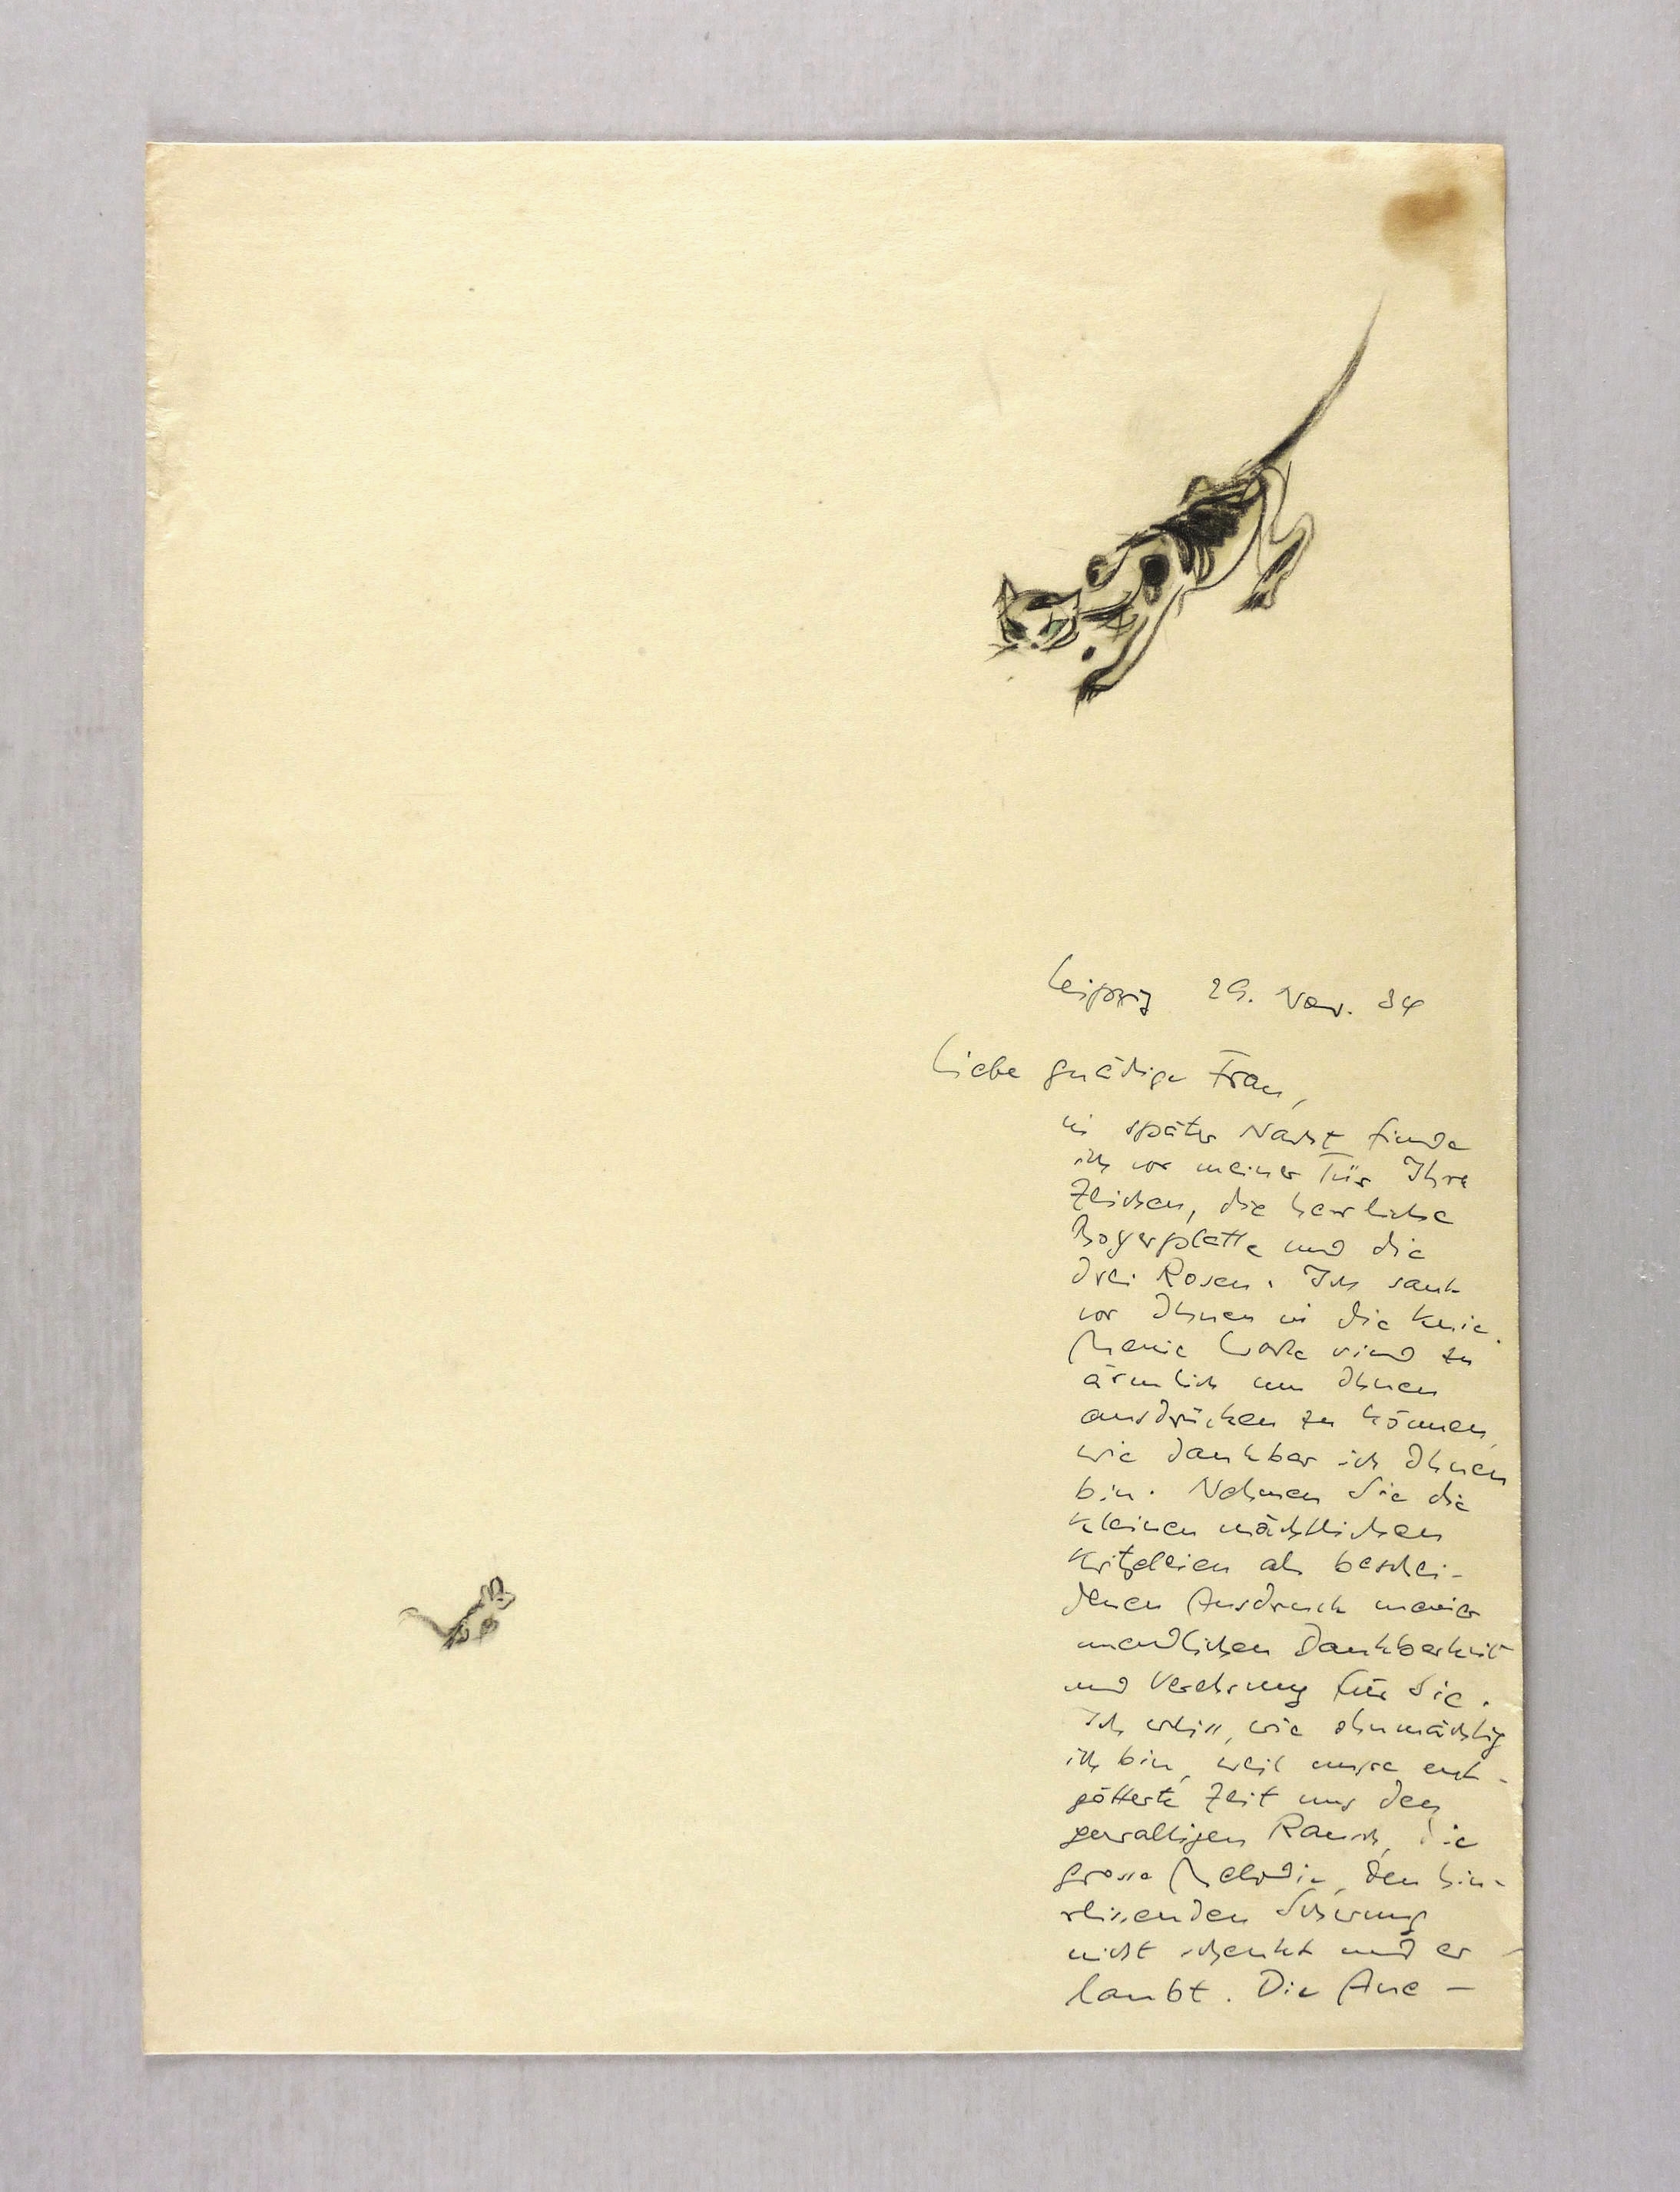 Leipzig 29. Nov. 34
Liebe gnädige Frau,
in später Nacht finde
ich vor meiner Tür Ihre
Zeichen, die herrliche
und die
drei Rosen. Ich sank
vor Ihnen in die Knie.
Meine Worte sind zu
ärmlich um Ihnen
ausdrücken zu können,
wie dankbar ich Ihnen
bin. Nehmen Sie die
kleinen nächtlichen
Kritzeleien als beschei-
denen Ausdruck meiner
unendlichen Dankbarkeit
und Verehrung für Sie.
Ich weiss, wie ohnmächtig
ich bin, weil unsre ent-
götterte Zeit uns den
gewaltigen Rausch, die
grosse Melodie, den hin-
reissenden Schwung
nicht schenkt und er
laubt. Die Aue –